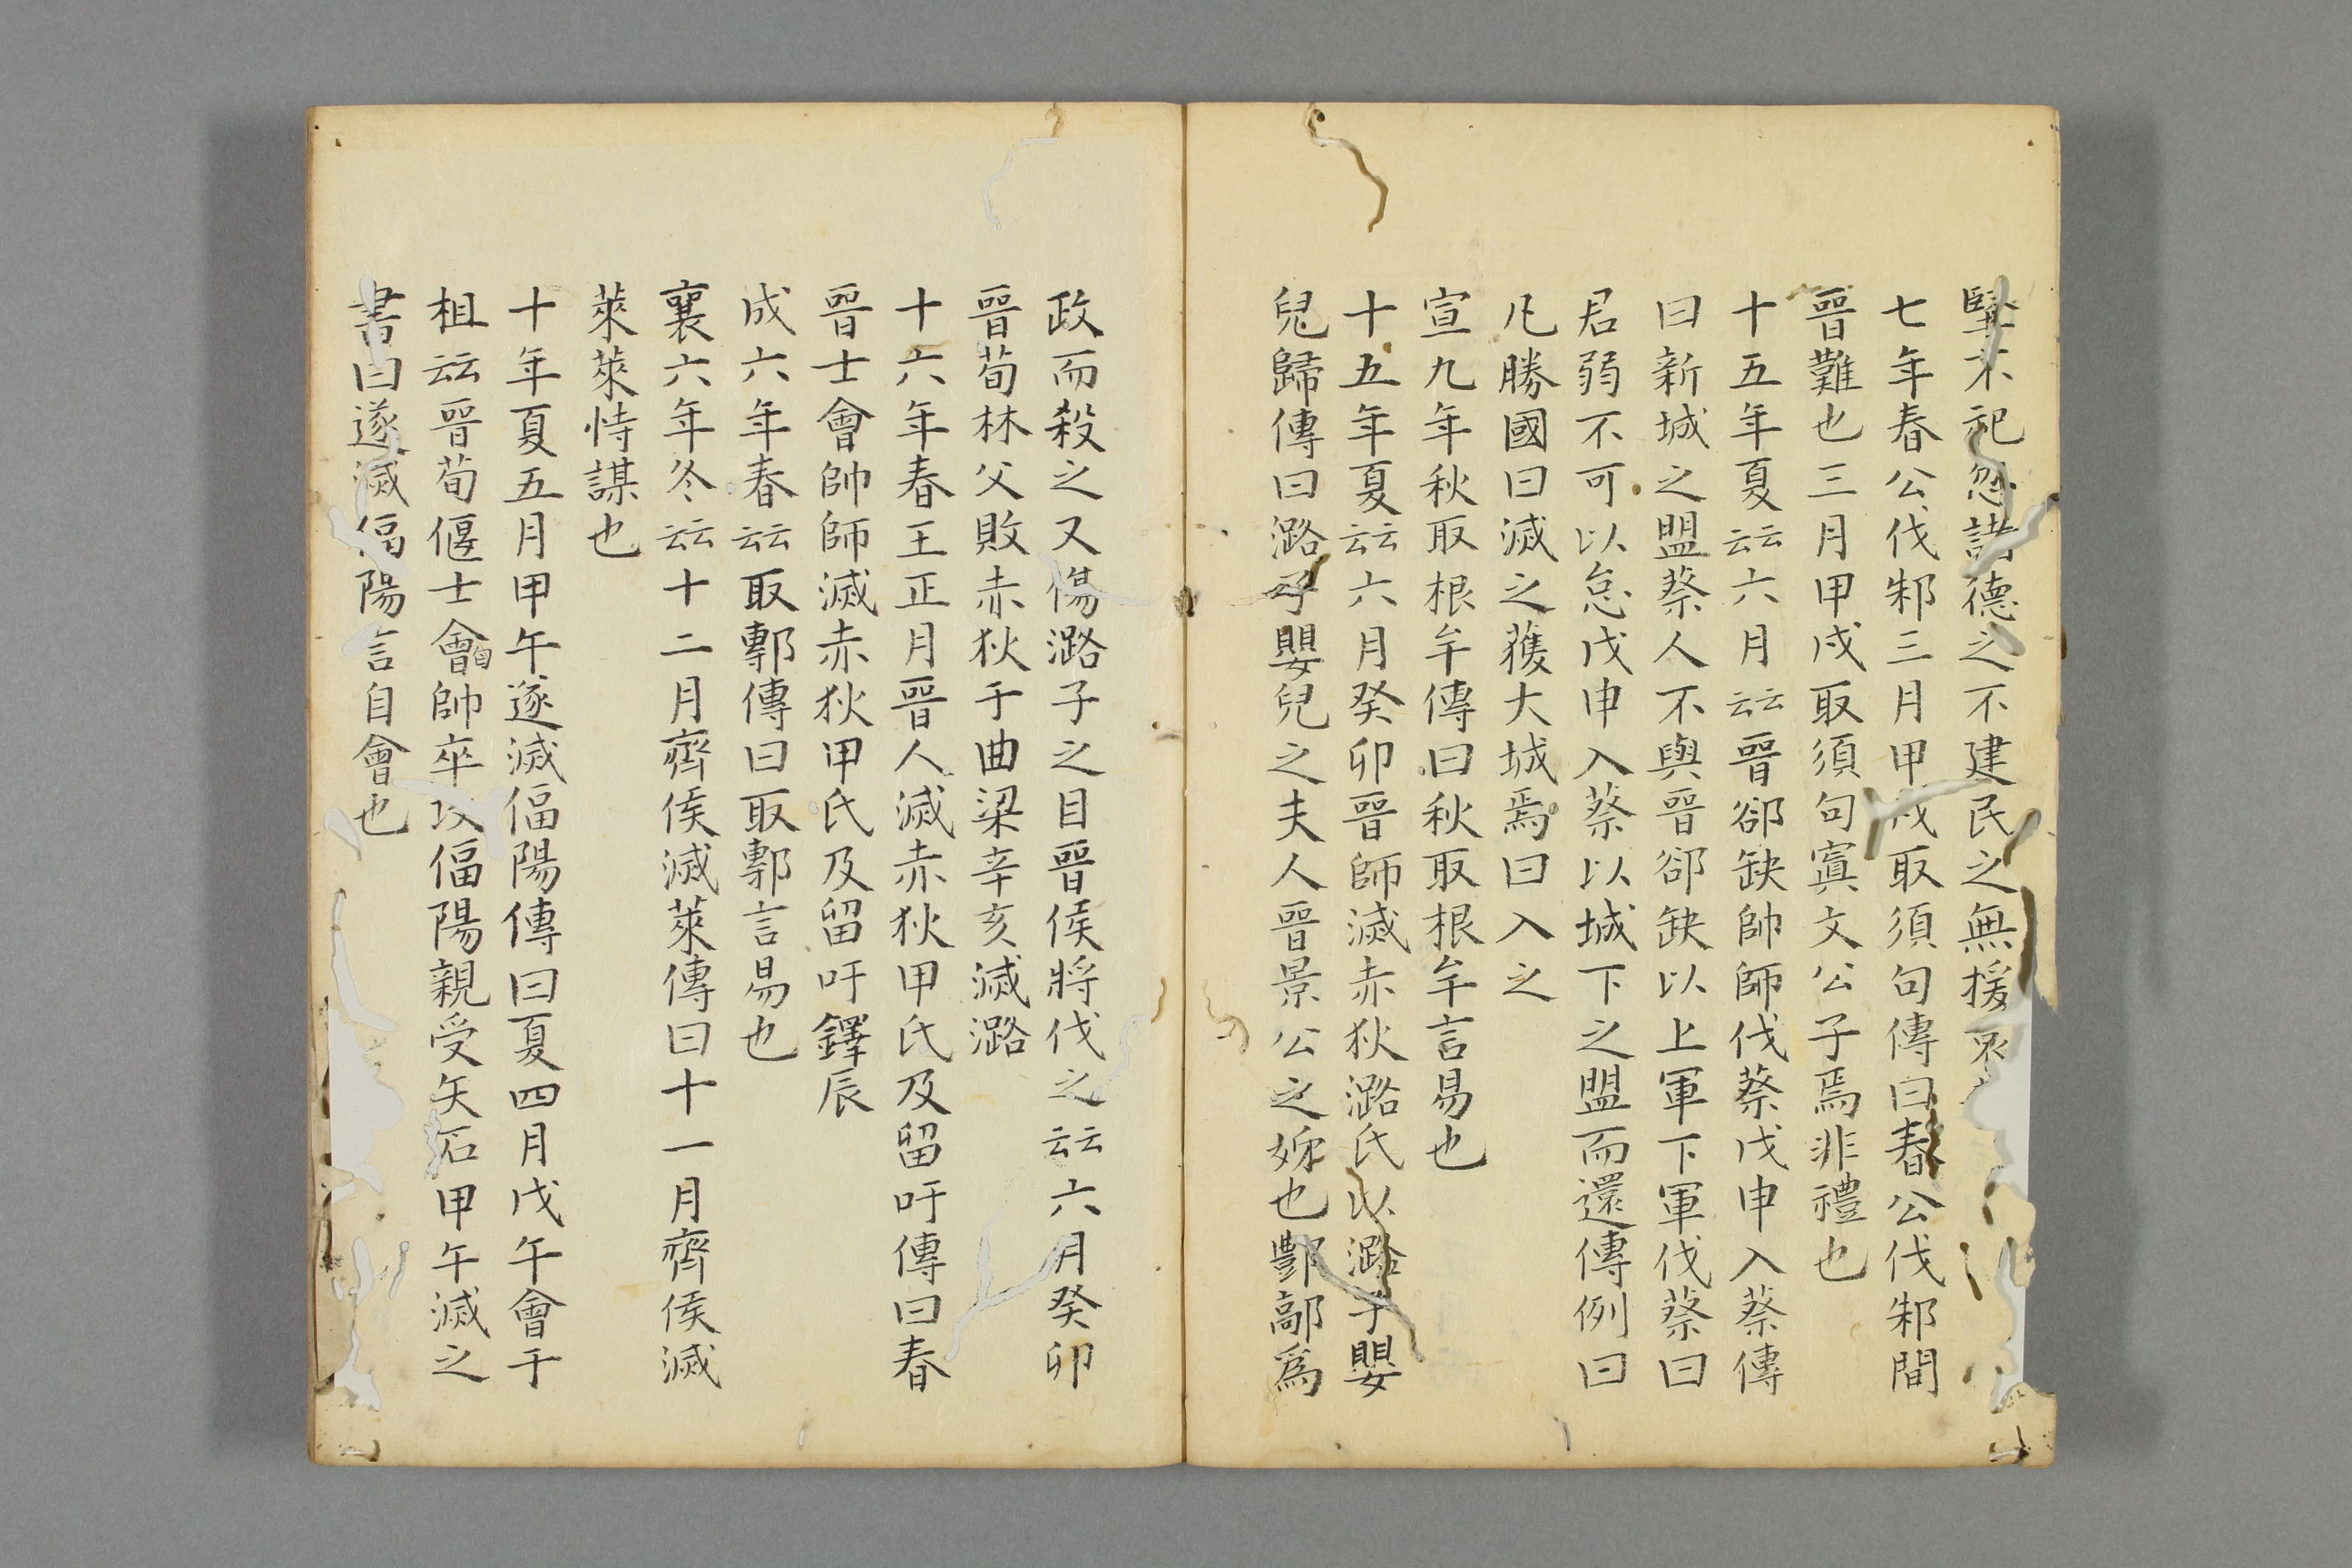 堅不祀忽諸德之不建民之無援哀
七年春公伐邾三月甲戌取須句傳曰春公伐邾間
晉難也三月甲戌取須句寘文公子焉非禮也
十五年夏云云六月云云晉郤缺帥師伐蔡戊申入蔡傳
曰新城之盟蔡人不與晉郤缺以上軍下軍伐蔡曰
君弱不可以怠戊申入蔡以城下之盟而還傳例曰
凡勝國曰滅之獲大城焉曰入之
宣九年秋取根牟傳曰秋取根牟言易也
十五年夏云云六月癸卯晉師滅赤狄潞氏以潞子嬰
兒歸傳曰潞子嬰兒之夫人晉景公之姊也酆鄗爲
政而殺之又傷潞子之目晉侯將伐之云云六月癸卯
晉荀林父敗赤狄于曲梁辛亥滅潞
十六年春王正月晉人滅赤狄甲氏及留吁傳曰春
晉士會帥師滅赤狄甲氏及留吁鐸辰
成六年春云云取鄟傳曰取鄟言易也
襄六年冬云云十二月齊侯滅萊傳曰十一月齊侯滅
萊萊恃謀也
十年夏五月甲午遂滅偪陽傳曰夏四月戊午會于
柤云云晉荀偃士會匄帥卒攻偪陽親受矢石甲午滅之
書曰遂滅偪陽言自會也